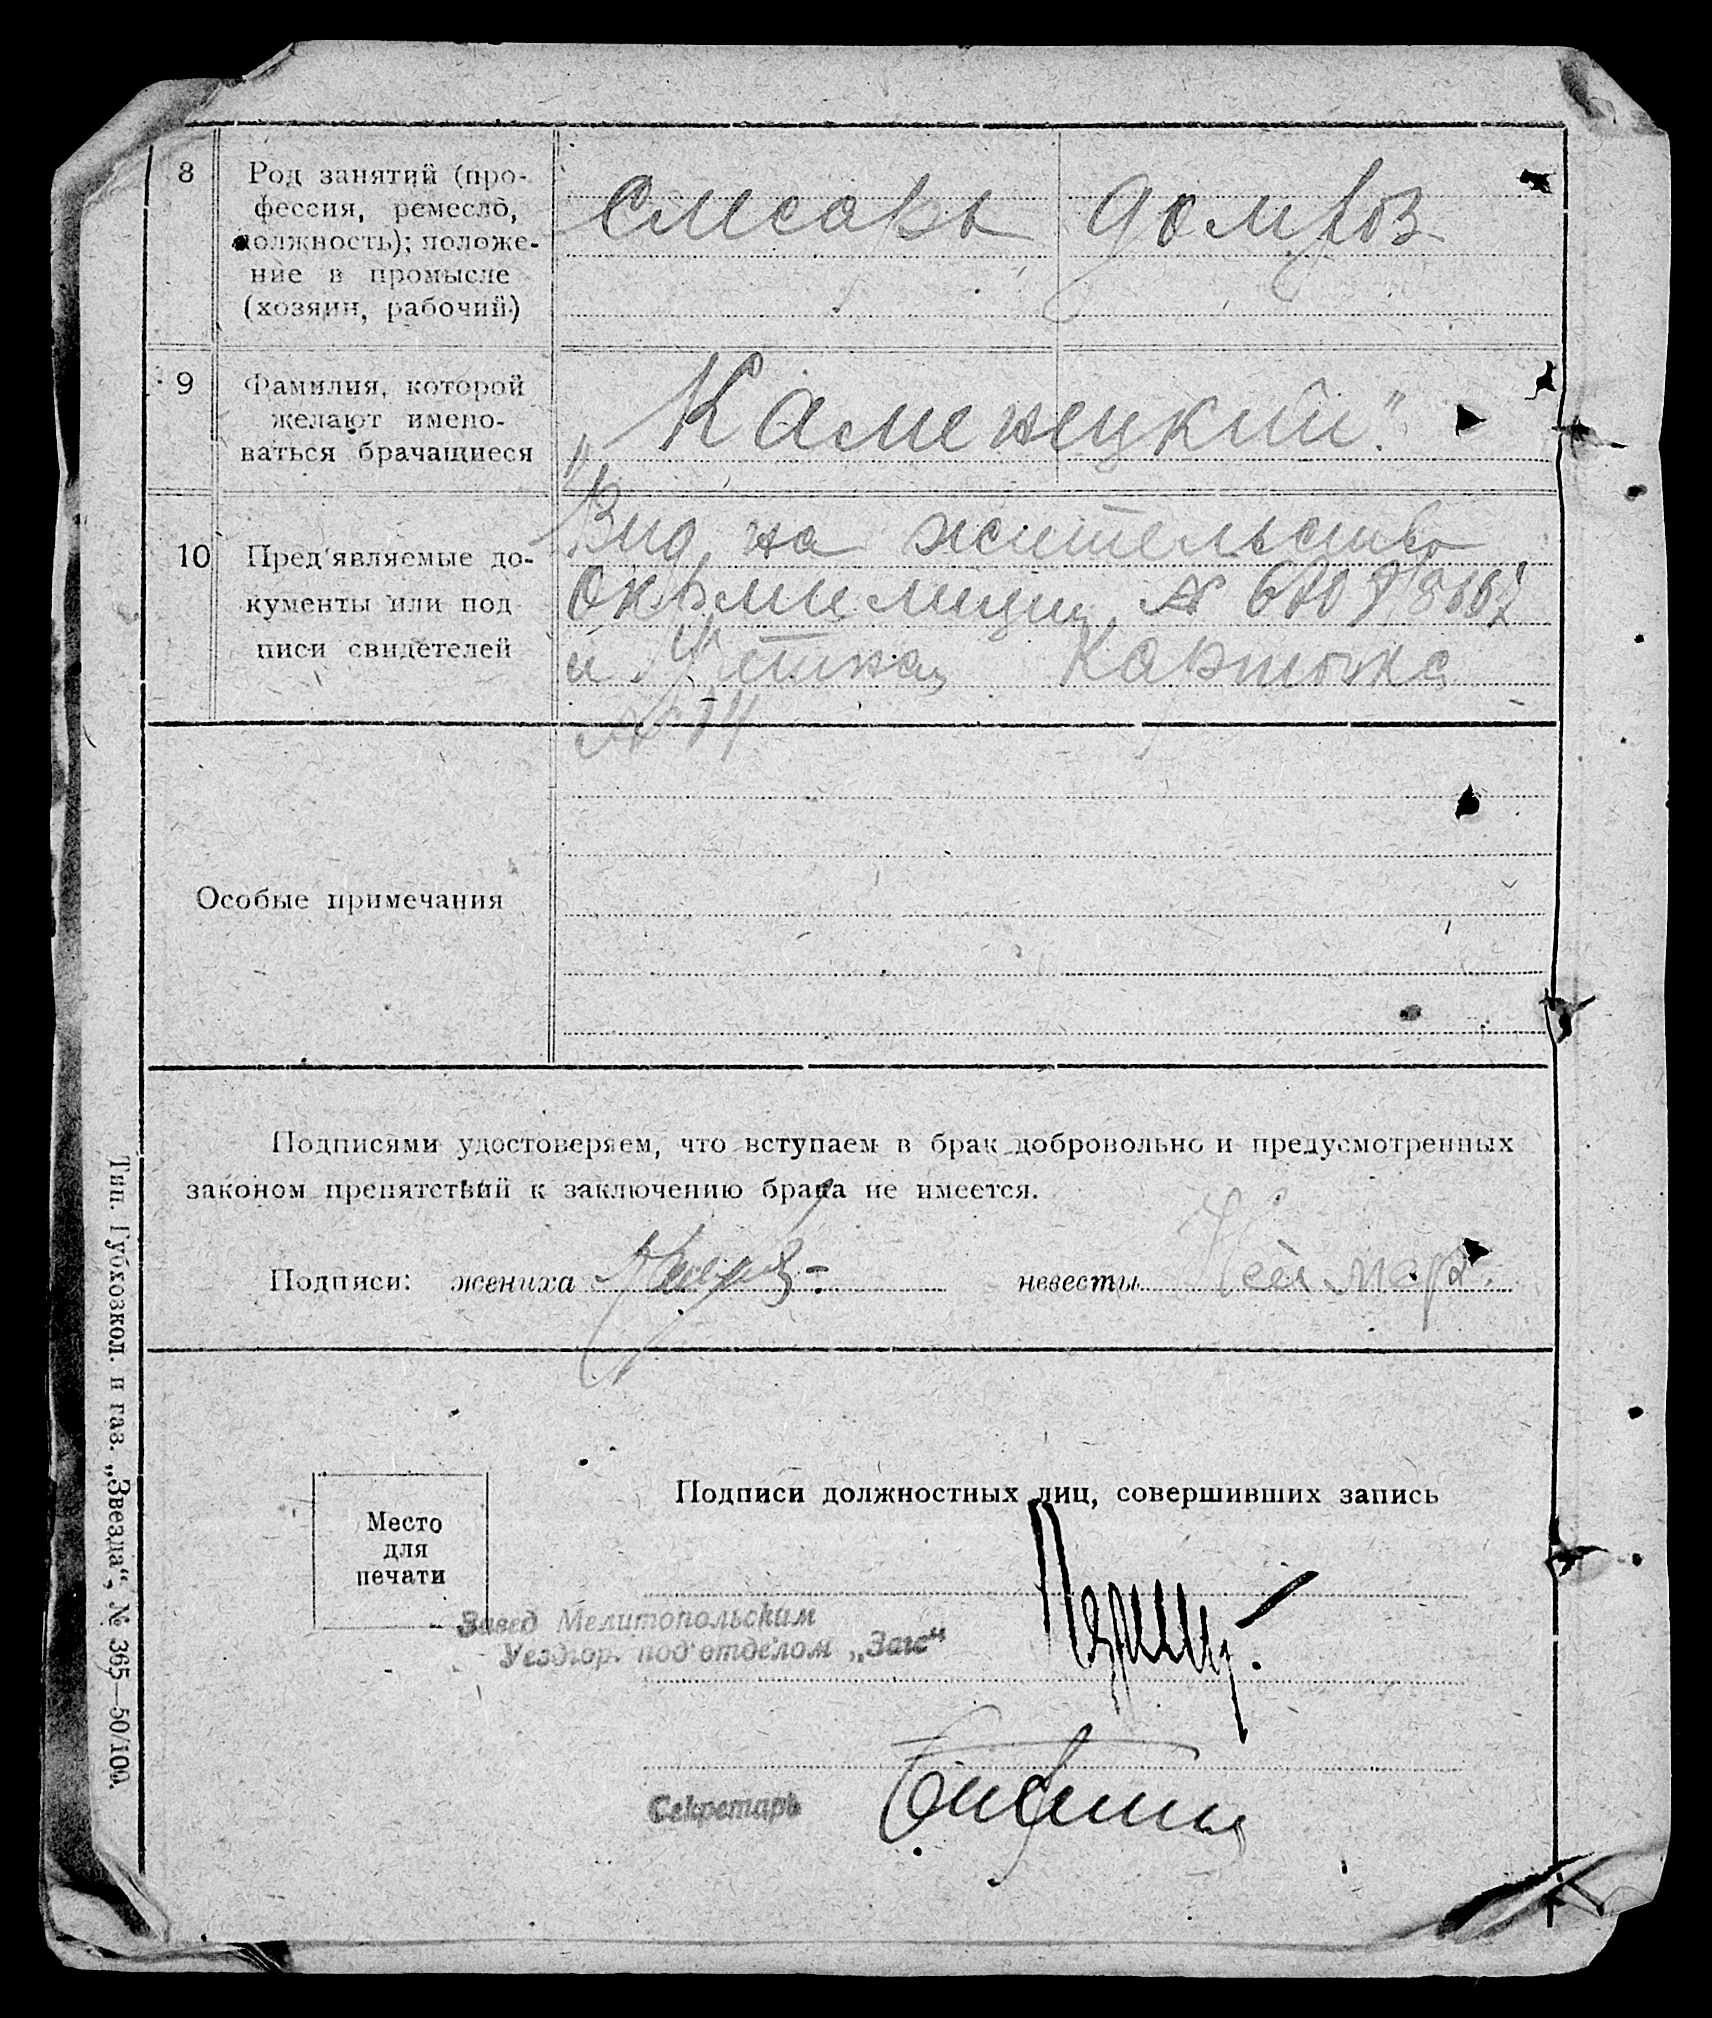 8
Род занятий (про-
фессия, ремесло,
должность); положе-
ние в промысле
(хозяин, рабочий)
Слесарь
домхоз
9
Фамилия, которой
желают имено-
ваться брачащиеся
„Каменецкий".
10
Пред'являемые до-
кументы или под
писи свидетелей
Вид на жительство
Окрмилиции №
и Учетная Карточка
№ 74
Особые примечания
Подписями удостоверяем, что вступаем в брак добровольно и предусмотренных
законом препятствий к заключению брака не имеется.
Подписи: жениха
невесты
Подписи должностных лиц, совершивших запись
Место
для
печати
Завед Мелитопольским
Уездгор. под'отделом „Загс"
Секретарь
Тип. Губхозкол. и газ. „Звезда", № 365—50/100.